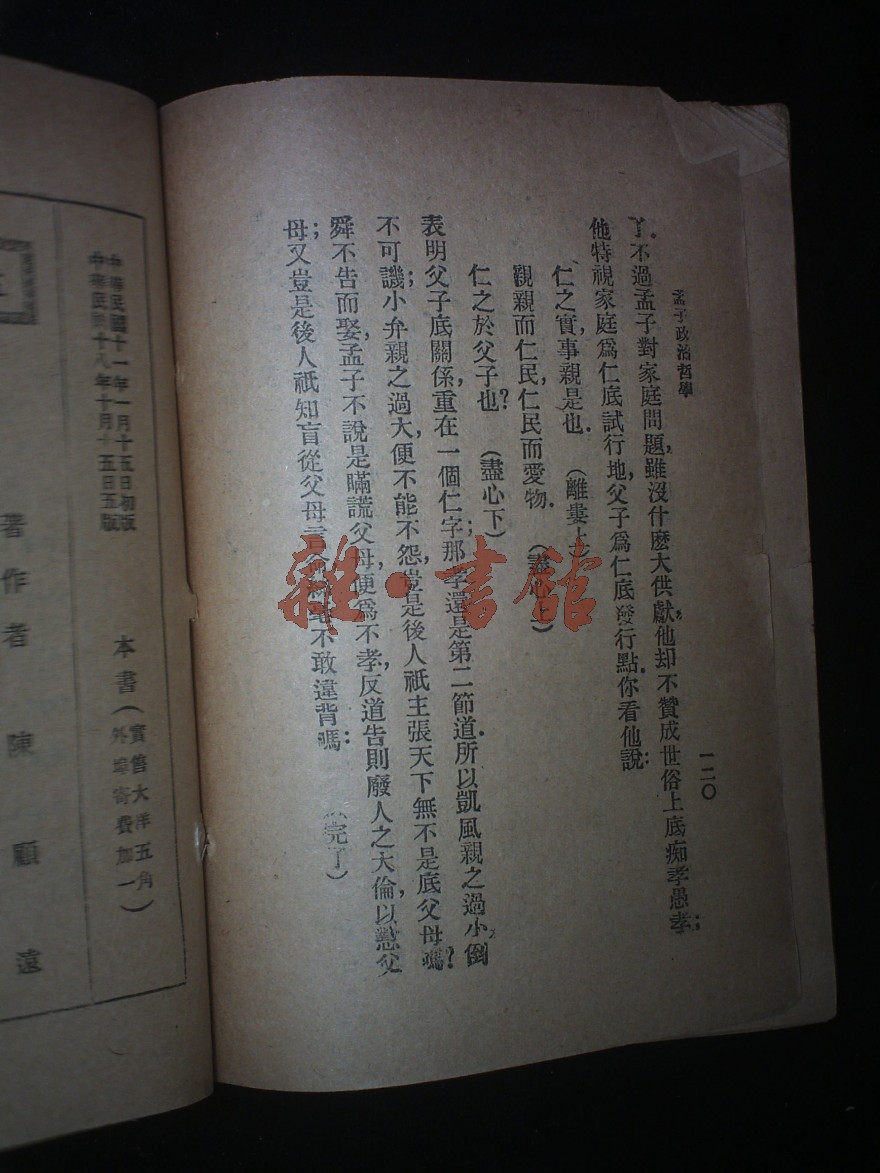 孟子政治哲學
一二〇
了不過孟子對家庭問題,雖沒什麽大供獻,他却不贊成世俗上底痴孝愚孝;
他特視家庭爲仁底試行地,父子爲仁底發行點.你看他說:
仁之實,事親是也.(離婁上)
親親而仁民,仁民而愛物.(盡心上)
仁之於父子也?(盡心下)
表明父子底關係,重在一個仁字;那孝還是第二節道.所以凱風親之過小,倒
不可譏;小弁親之過大,便不能不怨.豈是後人祇主張天下無不是底父母嗎?
舜不告而娶,孟子不說是瞞謊父母,便爲不孝,反道告則廢人之大倫,以懟父
母;又豈是後人祇知盲從父母言 不敢違背嗎:(完了)
雜·書館
中華民國十一年一月十五日初版
中華民國十八年十月十五日五版
本書(實售大洋五角
外埠寄費加一)
著作者 陳顧遠